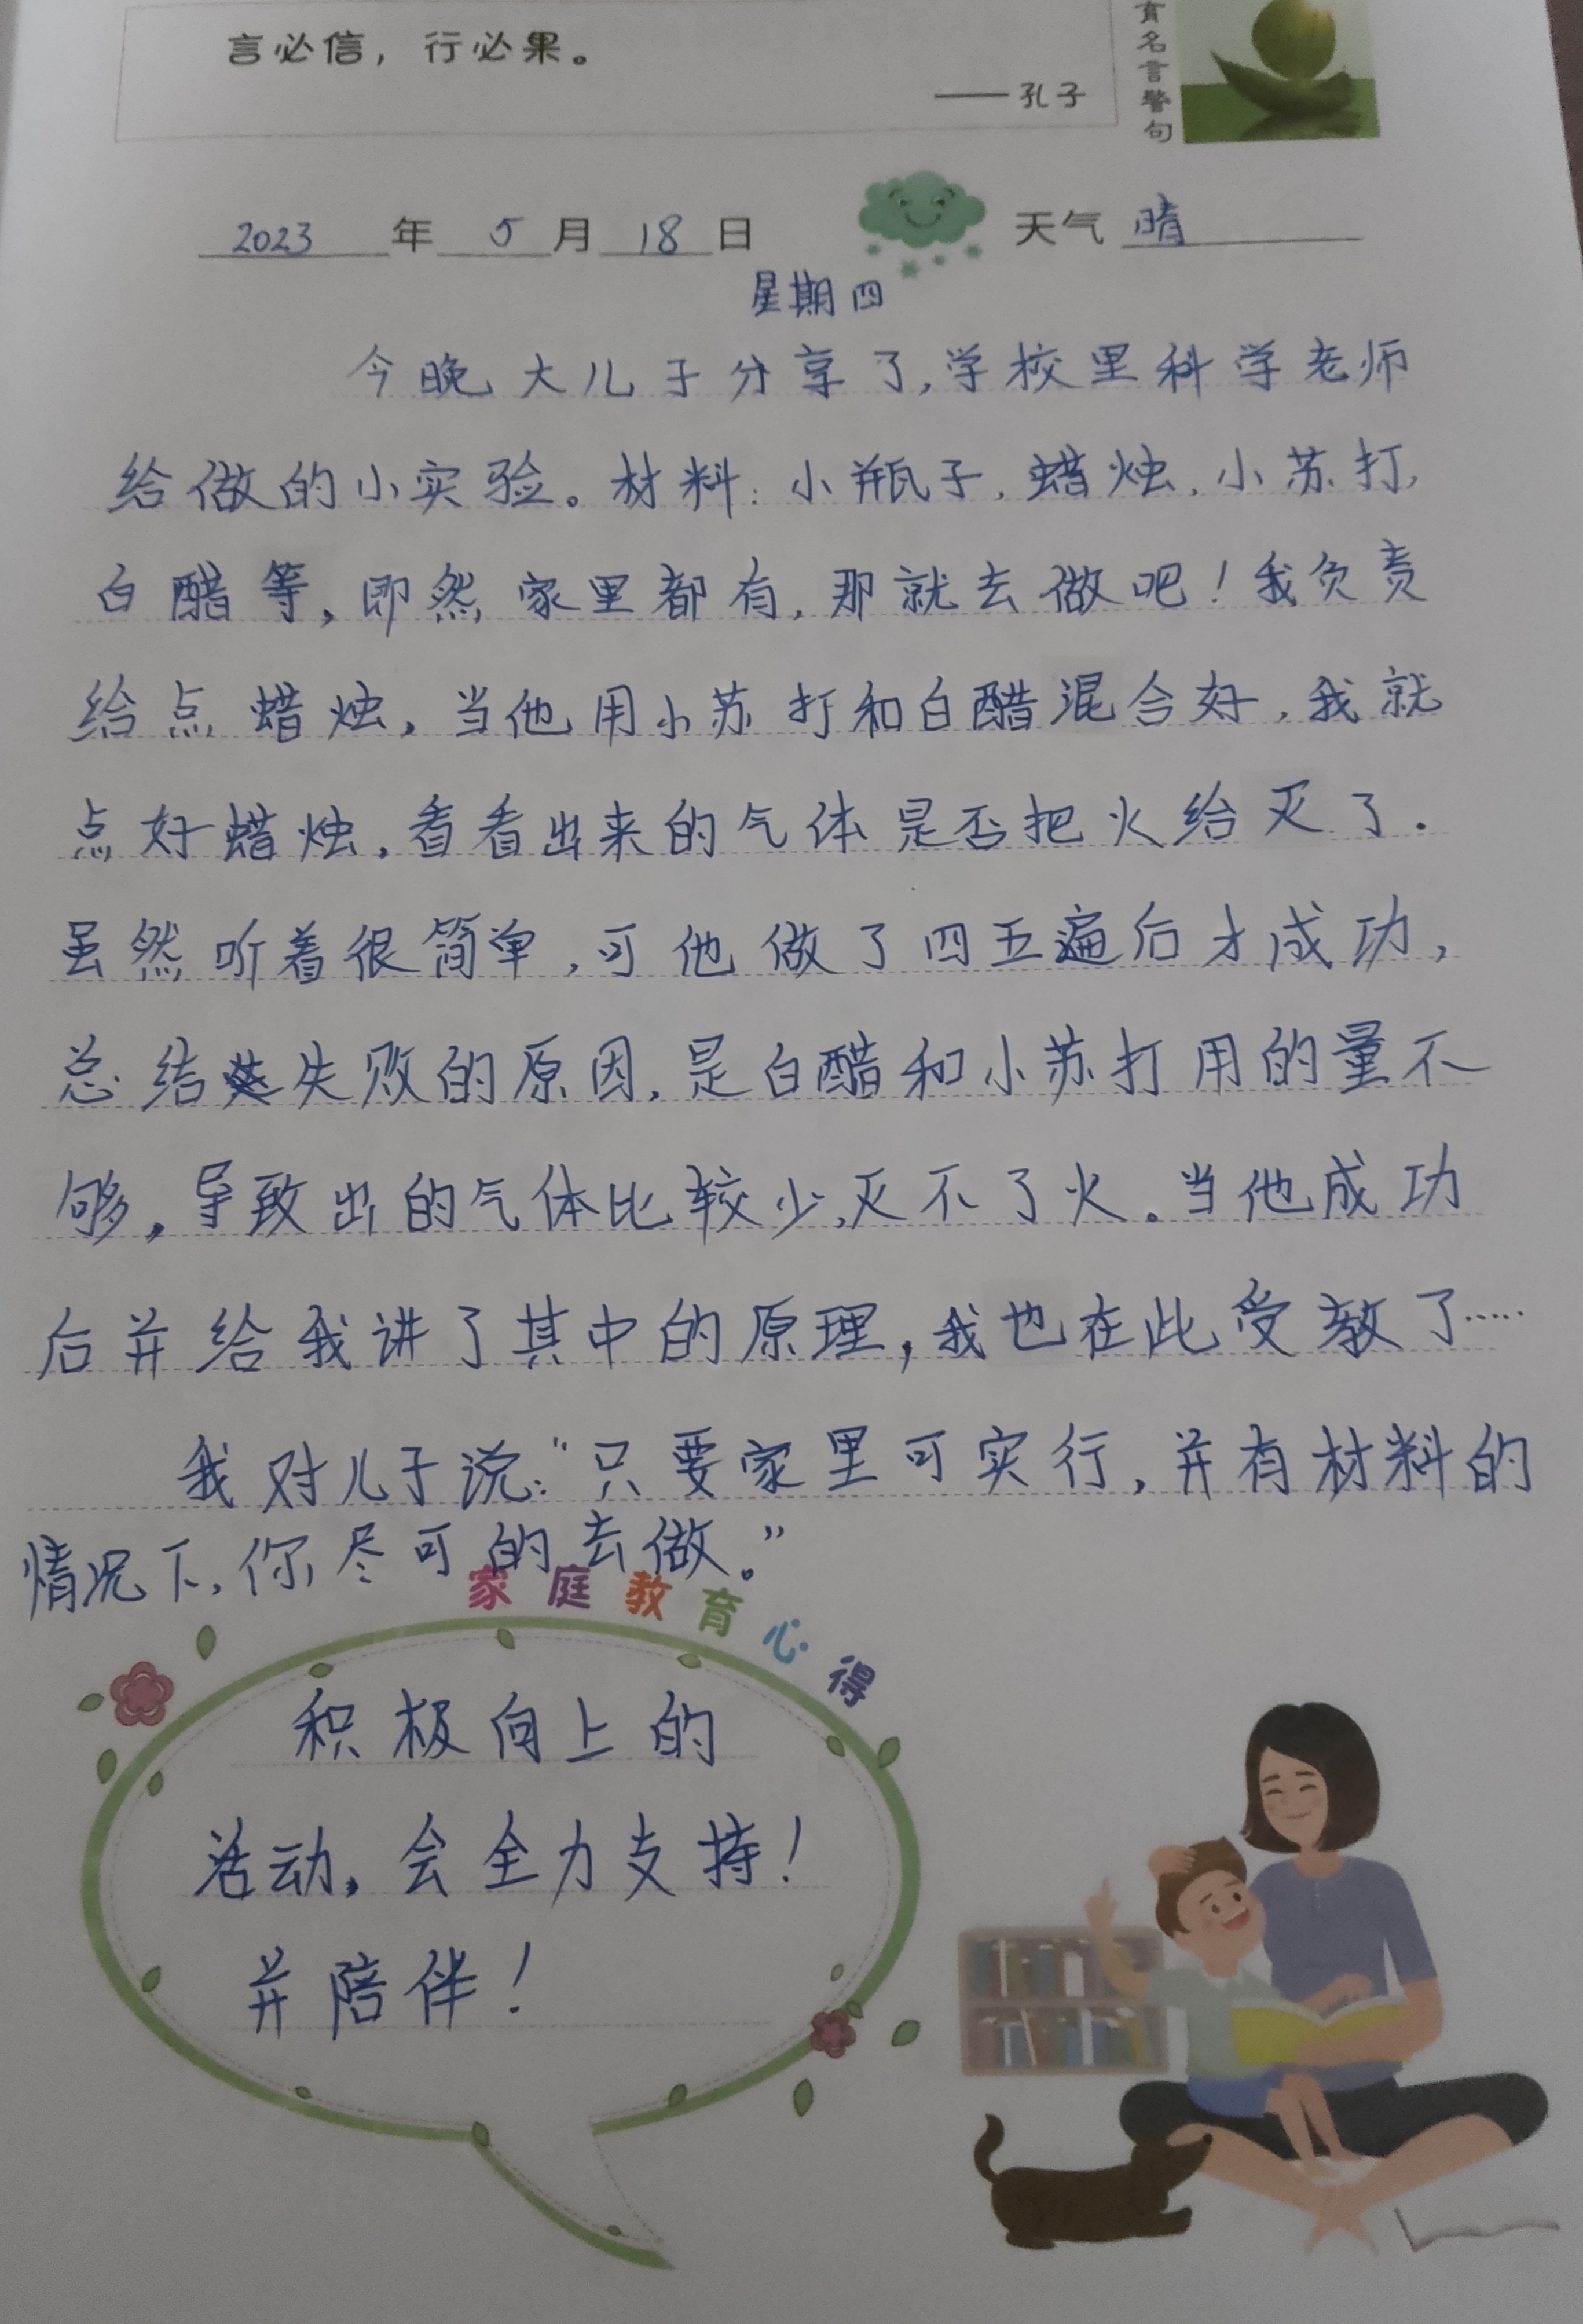 言必信，行必果。
——孔子
育名言警句
2023年5月18日 天气 晴
星期四
今晚大儿子分享了,学校里科学老师
给做的小实验。材料:小瓶子,蜡烛,小苏打,
白醋等,即然家里都有,那就去做吧!我负责
给点蜡烛,当他用小苏打和白醋混合好,我就
点好蜡烛,看看出来的气体是否把火给灭了.
虽然听着很简单,可他做了四五遍后才成功,
总结失败的原因,是白醋和小苏打用的量不
够,导致出的气体比较少,灭不了火。当他成功
后并给我讲了其中的原理,我也在此受教了……
我对儿子说:“只要家里可实行,并有材料的
情况下,你尽可的去做。”
家庭教育心得
积极向上的
活动,会全力支持!
并陪伴!